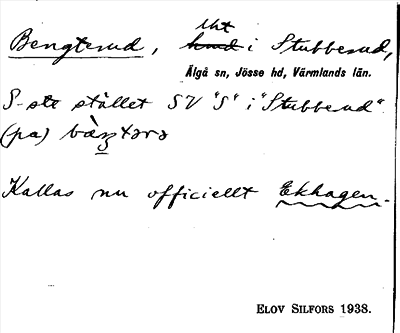 Bengterud, Uht i Stubberud,
Älgå sn, Jösse hd, Värmlands län.
S-ste stället SV "S" i "Stubberud".
(pa)
Kallas nu officiellt Ekhagen.
ELOV SILFORS 1938.